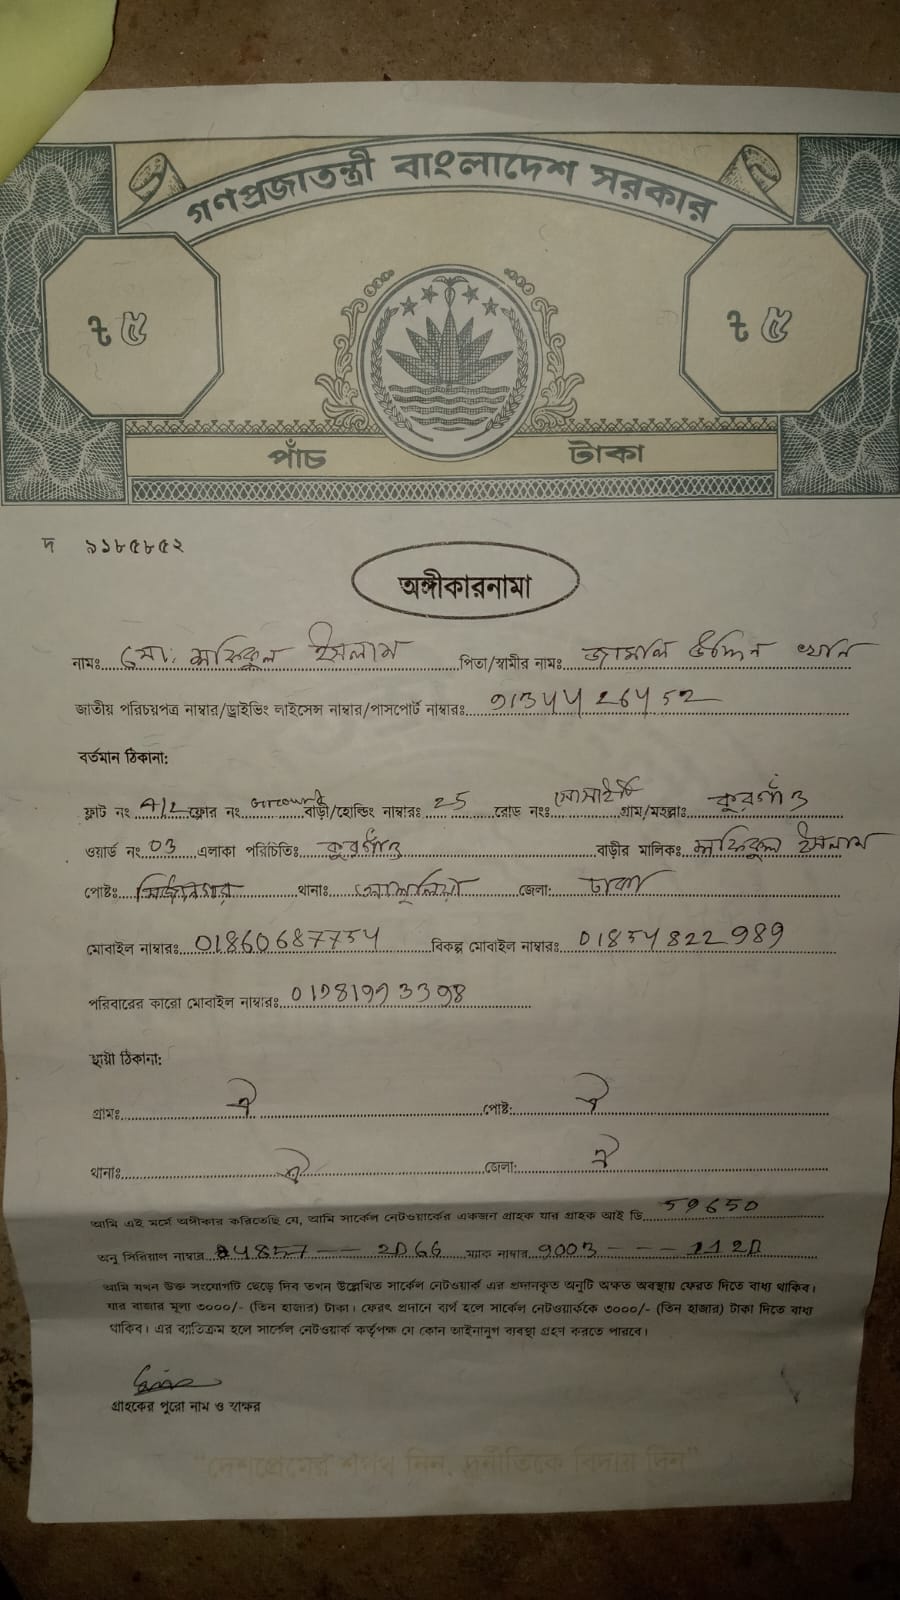 গণপ্রজাতন্ত্রী বাংলাদেশ সরকার
৳ ৫
৳ ৫
পাঁচ টাকা
দ ৯১৮৫৮৫২
অঙ্গীকারনামা
নামঃ মো: শফিকুল ইসলাম পিতা/স্বামীর নামঃ জামাল উদ্দিন খান
জাতীয় পরিচয়পত্র নাম্বার/ড্রাইভিং লাইসেন্স নাম্বার/পাসপোর্ট নাম্বারঃ
বর্তমান ঠিকানা:
ফ্লাট নং A/2 ফ্লোর নং Ground বাড়ী/হোল্ডিং নাম্বারঃ 25 রোড নংঃ সোসাইটি গ্রাম/মহল্লাঃ কুরগাঁও
ওয়ার্ড নং 03 এলাকা পরিচিতিঃ কুরগাঁও বাড়ীর মালিকঃ শফিকুল ইসলাম
পোষ্টঃ মির্জানগর থানাঃ আশুলিয়া জেলা: ঢাকা
মোবাইল নাম্বারঃ 01860687754 বিকল্প মোবাইল নাম্বারঃ 01854822989
পরিবারের কারো মোবাইল নাম্বারঃ
স্থায়ী ঠিকানা:
গ্রামঃ ঐ পোষ্ট: ঐ
থানাঃ ঐ জেলা: ঐ
আমি এই মর্মে অঙ্গীকার করিতেছি যে, আমি সার্কেল নেটওয়ার্কের একজন গ্রাহক যার গ্রাহক আই ডি 59650
অনু সিরিয়াল নাম্বার 84857 --- 2D66 ম্যাক নাম্বার 9003 --- 112D
আমি যখন উক্ত সংযোগটি ছেড়ে দিব তখন উল্লেখিত সার্কেল নেটওয়ার্ক এর প্রদানকৃত অনুটি অক্ষত অবস্থায় ফেরত দিতে বাধ্য থাকিব।
যার বাজার মূল্য ৩০০০/- (তিন হাজার) টাকা। ফেরৎ প্রদানে ব্যর্থ হলে সার্কেল নেটওয়ার্ককে ৩০০০/- (তিন হাজার) টাকা দিতে বাধ্য
থাকিব। এর ব্যতিক্রম হলে সার্কেল নেটওয়ার্ক কর্তৃপক্ষ যে কোন আইনানুগ ব্যবস্থা গ্রহণ করতে পারবে।
গ্রাহকের পুরো নাম ও স্বাক্ষর
"দেশপ্রেমের শপথ নিন, দুর্নীতিকে বিদায় দিন"